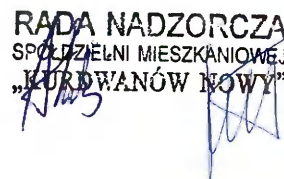 RADA NADZORCZA
SPÓŁDZIELNI MIESZKANIOWEJ
„KURDWANÓW NOWY"